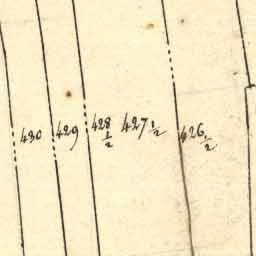 430 429 428 1/2 427 1/2 426 1/2